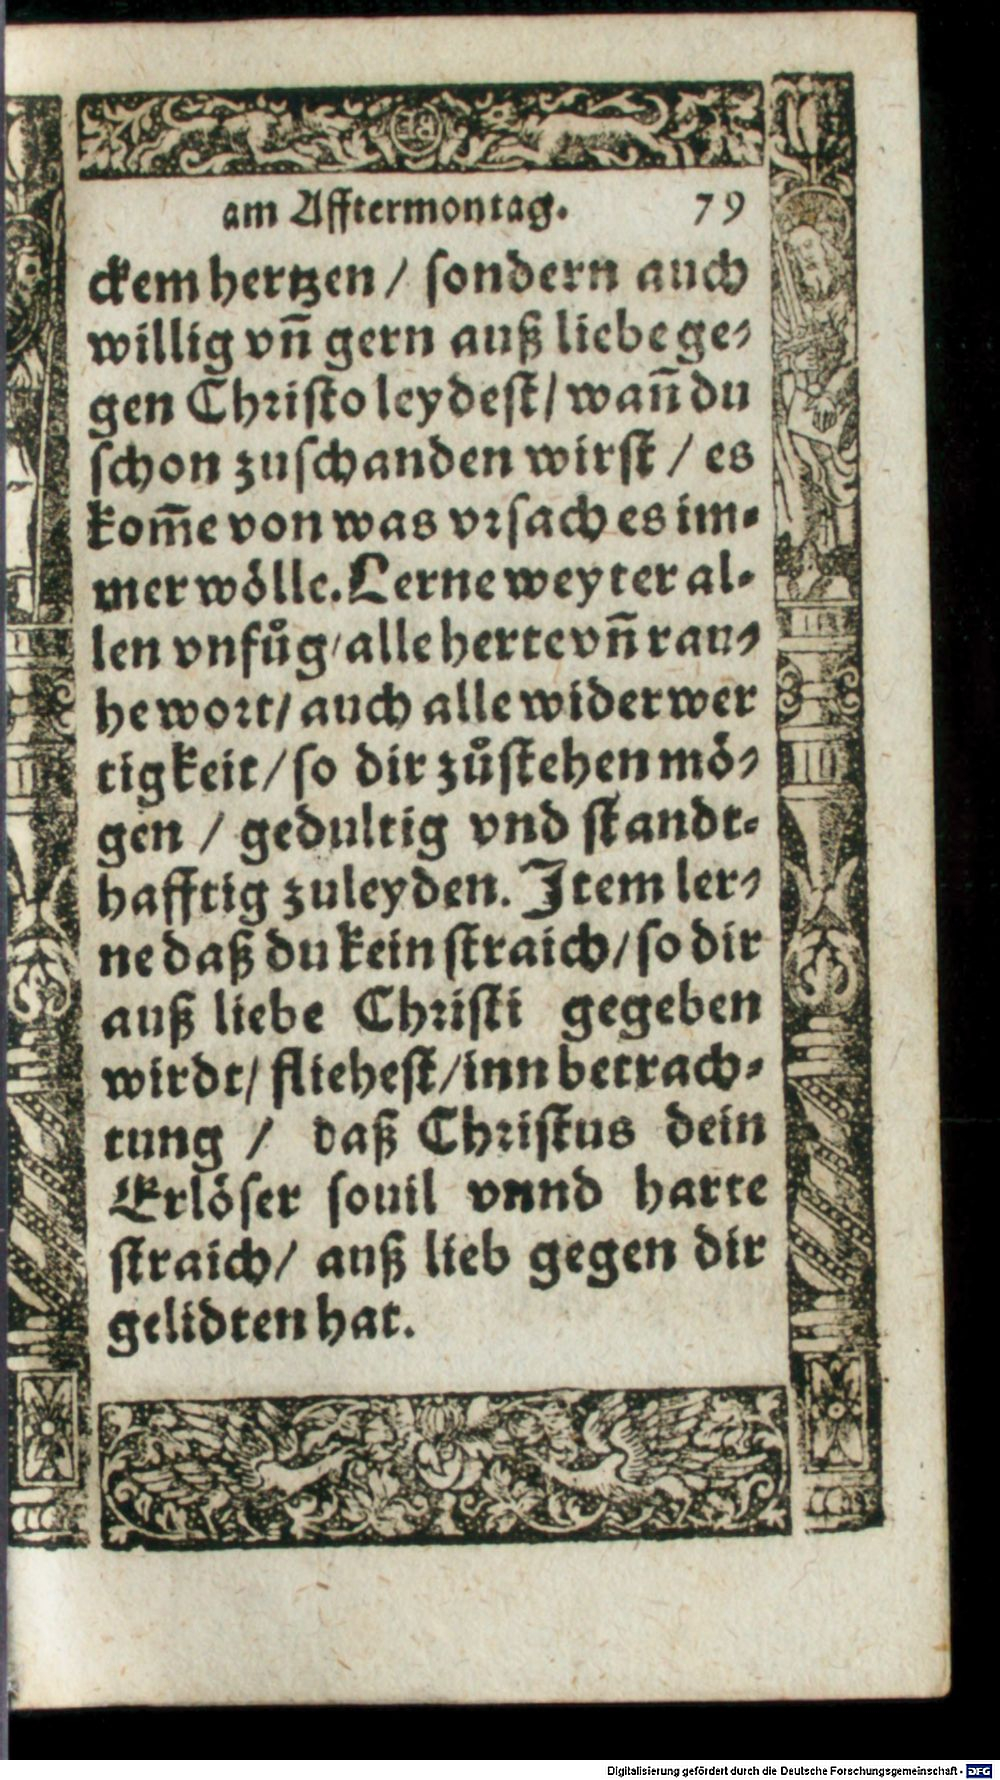 am Afftermontag. 79
ckem hertzen / sondern auch
willig vñ gern auß liebe ge-
gen Christo leydest / wañ du
schon zuschanden wirst / es
kom̄e von was vrsach es im-
mer wölle. Lerne weyter al-
len vnfůg / alle herte vñ rau-
he wort / auch alle widerwer
tigkeit / so dir zůstehen mö-
gen / gedultig vnd standt-
hafftig zuleyden. Item ler-
ne daß du kein straich / so dir
auß liebe Christi gegeben
wirdt / fliehest / inn betrach-
tung / daß Christus dein
Erlöser souil vnnd harte
straich / auß lieb gegen dir
gelidten hat.
Digitalisierung gefördert durch die Deutsche Forschungsgemeinschaft - DFG